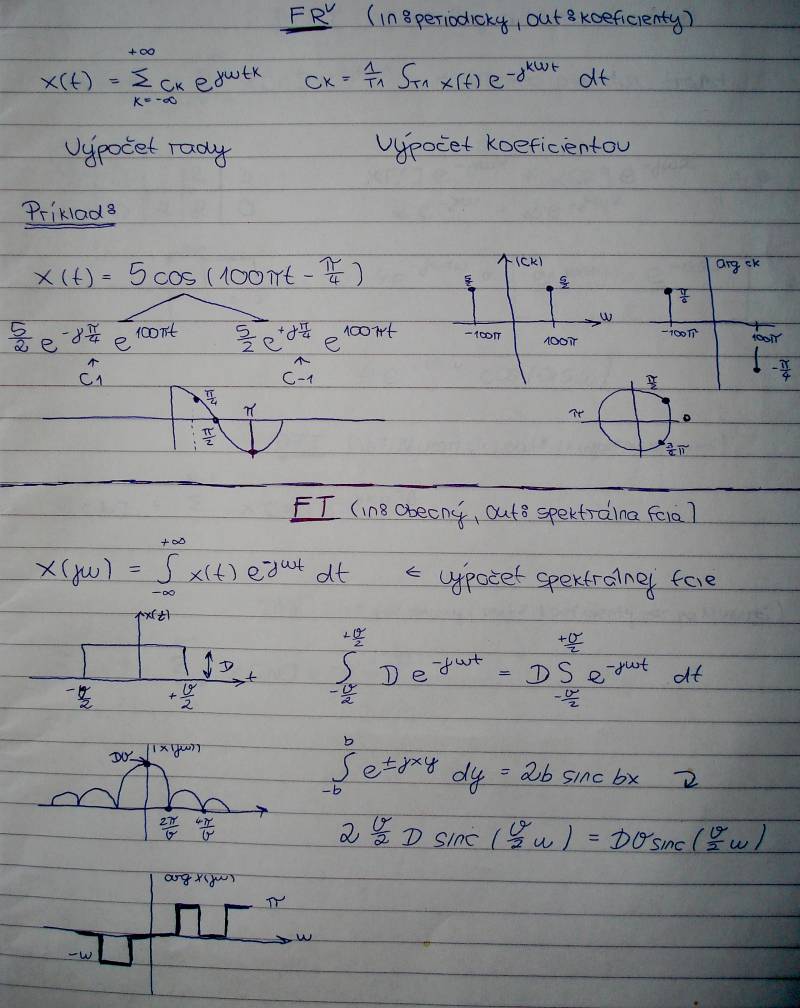 FŘ (in: periodicky, out: koeficienty)
x(t) = Σ_{k=-∞}^{+∞} c_k e^{jωtk}   c_k = 1/T1 ∫_{T1} x(t) e^{-jkωt} dt
Výpočet rady   Výpočet koeficientov
Príklad:
x(t) = 5 cos (100πt - π/4)
5/2 e^{-jπ/4} e^{100πt}   5/2 e^{+jπ/4} e^{100πt}
↑ C1   ↑ C-1
|Ck|   5/2   5/2   -100π   100π   ω
arg ck   -100π   100π   -π/4
π/4   π/2   π
π/2   π   0   3/2 π
FT (in: obecný, out: spektrálna fcia)
X(jω) = ∫_{-∞}^{+∞} x(t) e^{-jωt} dt   ← výpočet spektrálnej fcie
x(t)   D   t   -ϑ/2   +ϑ/2
∫_{-ϑ/2}^{+ϑ/2} D e^{-jωt} = D ∫_{-ϑ/2}^{+ϑ/2} e^{-jωt} dt
Dϑ   |x(jω)|   2π/ϑ   4π/ϑ
∫_{-b}^{b} e^{±jxy} dy = 2b sinc bx
2 ϑ/2 D sinc (ϑ/2 ω) = Dϑ sinc (ϑ/2 ω)
arg x(jω)   π   -ω   ω